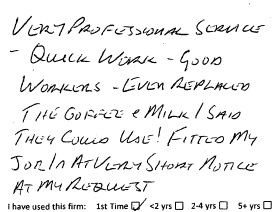 VERY PROFESSIONAL SERVICE
- QUICK WORK - GOOD
WORKERS - EVEN REPLACED
THE COFFEE & MILK I SAID
THEY COULD USE! FITTED MY
JOB IN AT VERY SHORT NOTICE
AT MY REQUEST
I have used this firm: 1st Time ☑ <2 yrs ☐ 2-4 yrs ☐ 5+ yrs ☐